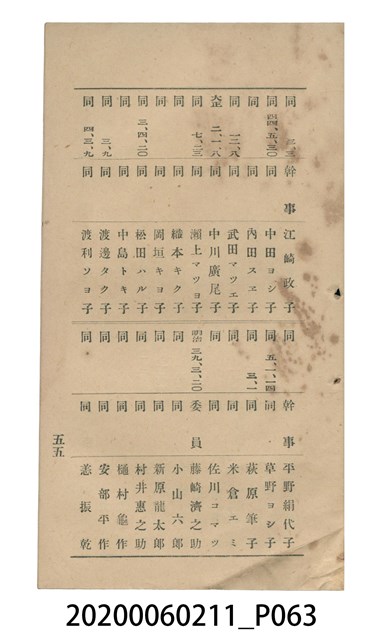 同 二、三 幹事 江崎政子
同 四四、五、三〇 同 中田ヨシ子
同 同 內田スヱ子
同 一二、八 同 武田マツエ子
大正 二、一、八 同 中川廣尾子
同 七、三 同 瀬上マツヨ子
同 同 織本キク子
同 同 岡垣キヨ子
同 三、四、二〇 同 松田ハル子
同 同 中島トキ子
同 三、九 同 渡邊タク子
同 四、三、九 同 渡利ソヨ子
同 幹事 平野絹代子
同 五、一、一四 同 草野ヨシ子
同 三、一 同 萩原筆子
同 同 米倉エミ
同 同 佐川コマツ
明治 三九、三、二〇 委員 藤崎濟之助
同 同 小山六郎
同 同 新原龍太郎
同 同 村井惠之助
同 同 樋村龜作
同 同 安部平作
同 同 恙振乾
五五
20200060211_P063